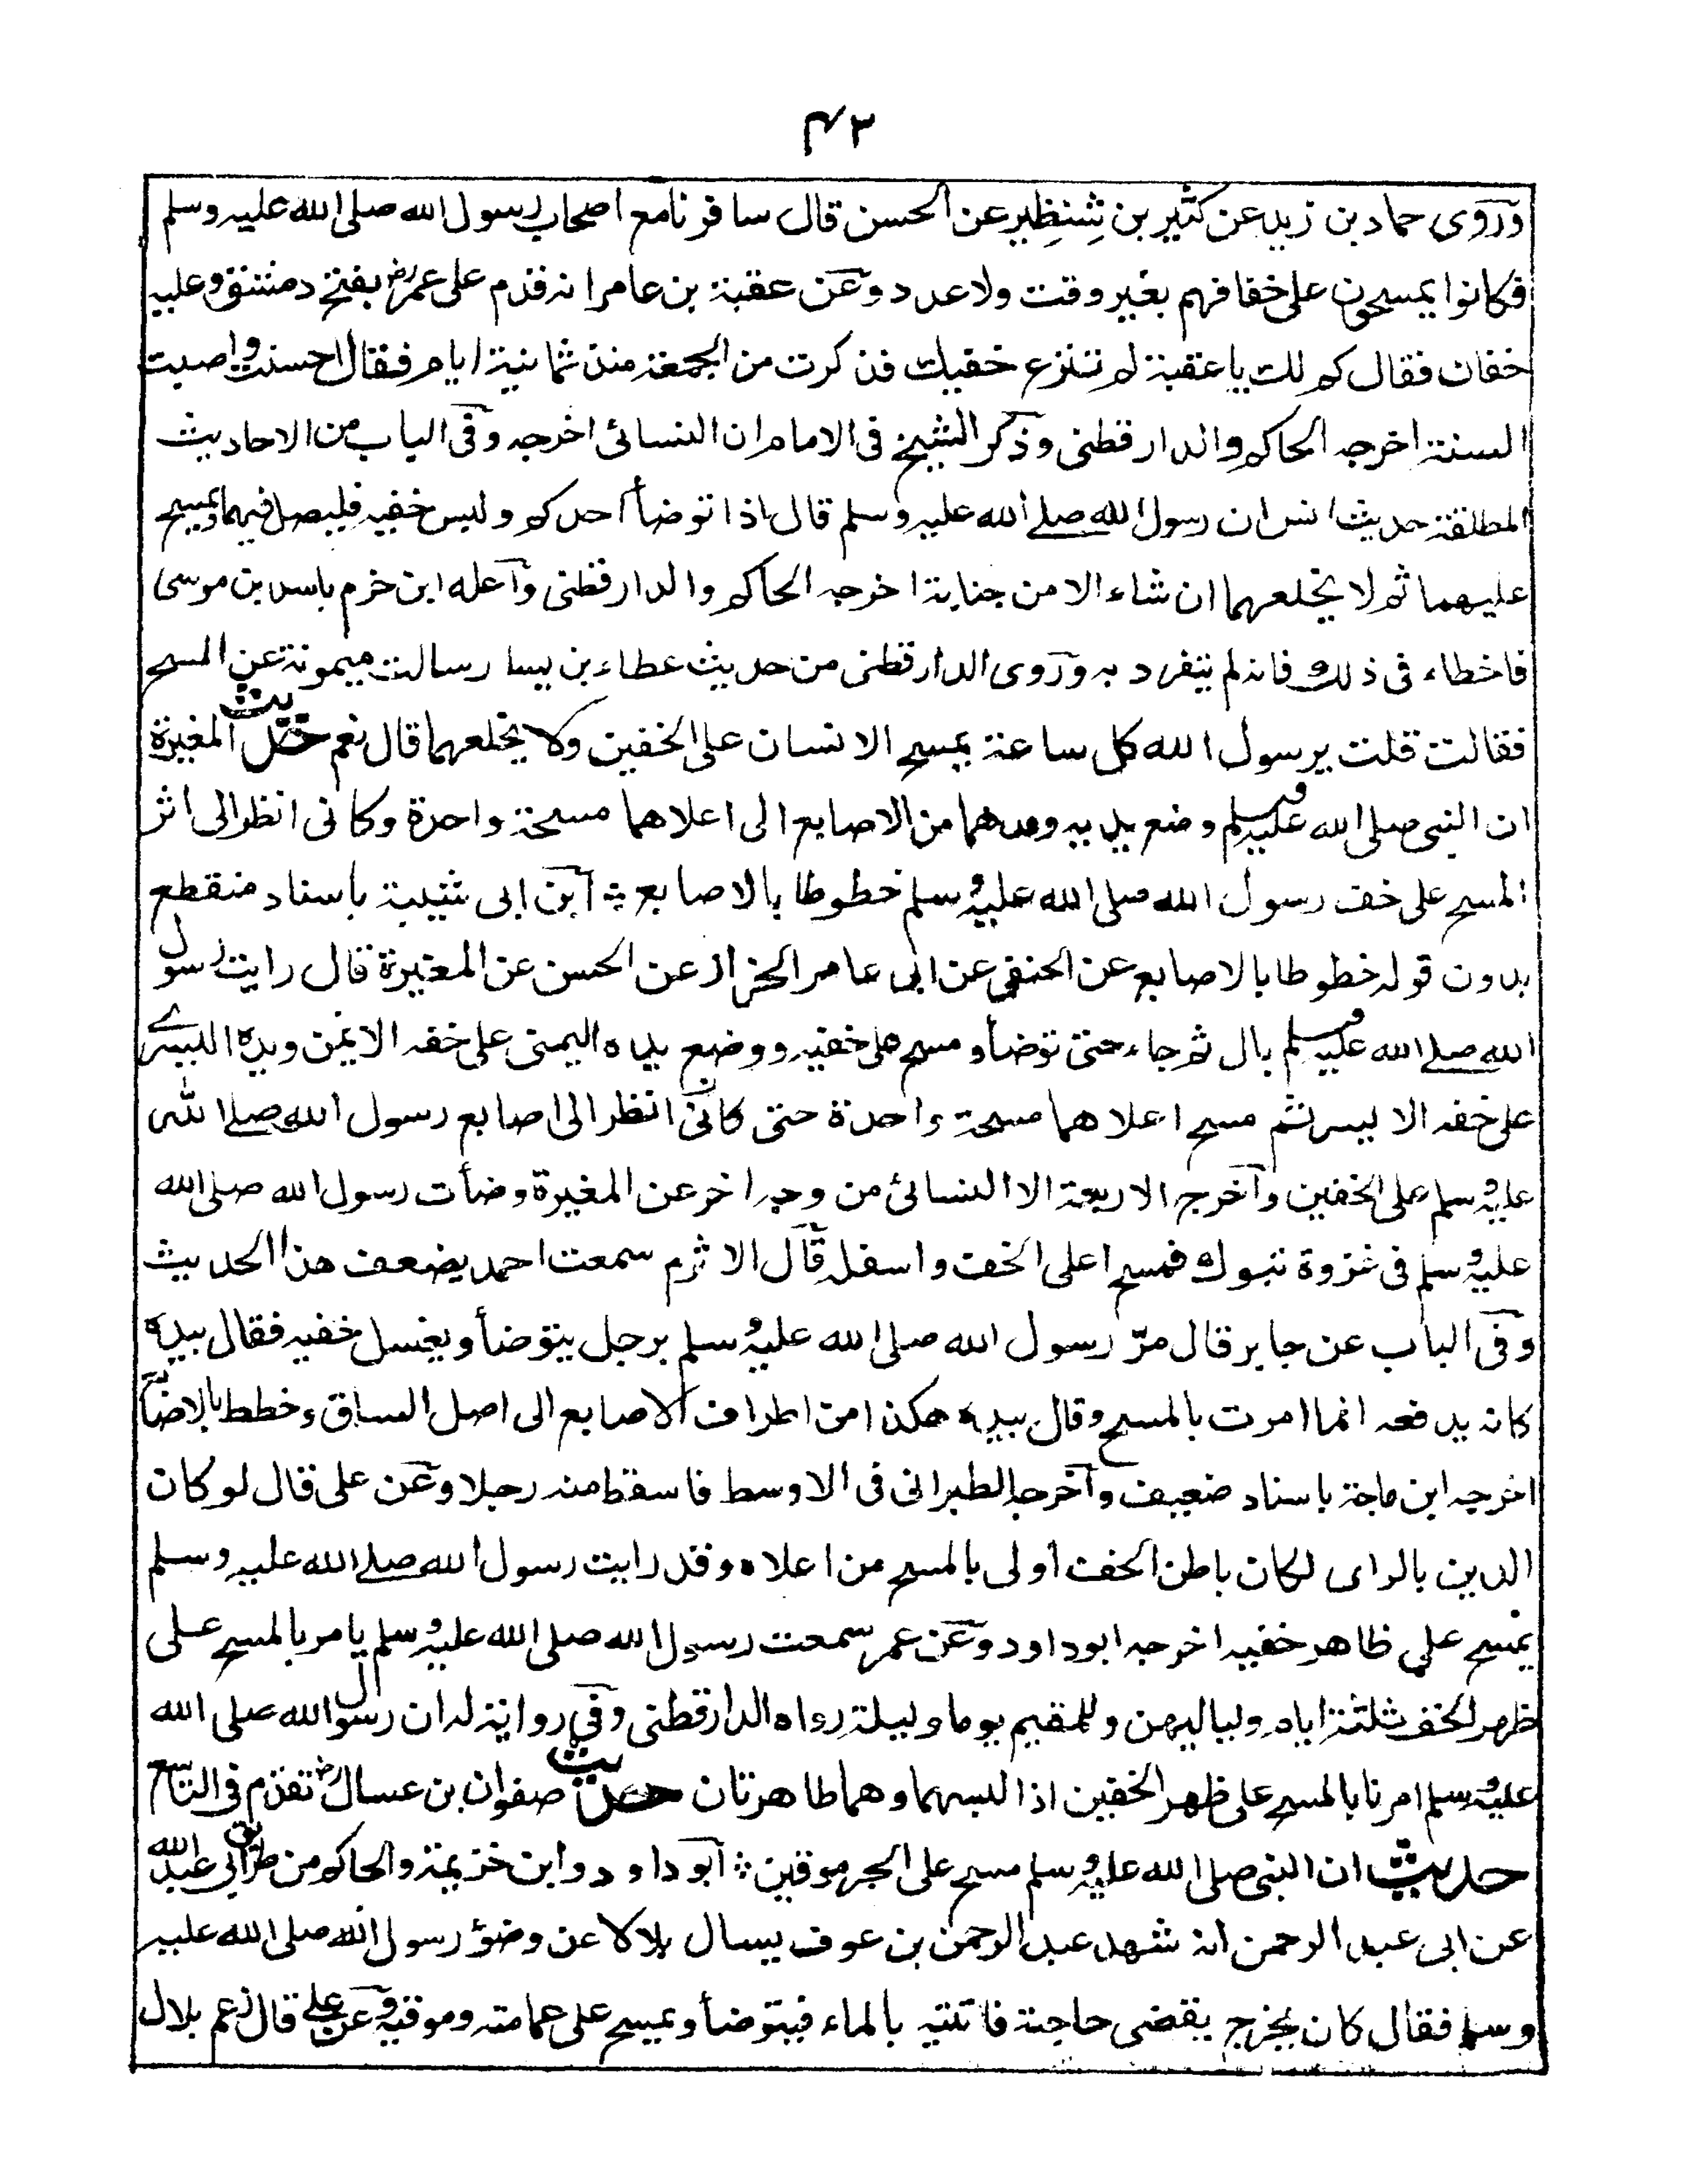 ٤٣
وروى حماد بن زيد عن كثير بن شِنظِير عن الحسن قال سافرنا مع اصحاب رسول الله صلى الله عليه وسلم
فكانوا يمسحون على خفافهم بغير وقت ولا عدد وعن عقبة بن عامر انه قدم على عمر رض بفتح دمشق وعليه
خفان فقال كم لك يا عقبة لم تنزع خفيك فذكرت من الجمعة منذ ثمانية ايام فقال احسنت واصبت
السنة اخرجه الحاكم والدارقطنى وذكر الشيخ فى الامام ان النسائى اخرجه وفى الباب من الاحاديث
المطلقة حديث انس ان رسول الله صلے الله عليه وسلم قال اذا توضأ احدكم ولبس خفيه فليصل فيهما وليمسح
عليهما ثم لا يخلعهما ان شاء الا من جنابة اخرجه الحاكم والدارقطنى واعله ابن حزم باسد بن موسى
فاخطاء فى ذلك فانه لم يتفرد به وروى الدارقطنى من حديث عطاء بن يسار سالت ميمونة عن المسح
فقالت قلت يرسول الله كل ساعة يمسح الانسان على الخفين ولا يخلعهما قال نعم حديث المغيرة
ان النبى صلى الله عليه وسلم وضع يديه ومدهما من الاصابع الى اعلاهما مسحة واحدة وكانى انظر الى اثر
المسح على خف رسول الله صلى الله عليه وسلم خطوطا بالاصابع ؞ ابن ابى شيبة باسناد منقطع
بدون قوله خطوطا بالاصابع عن الحنفى عن ابى عامر الخزاز عن الحسن عن المغيرة قال رايت رسول
الله صلے الله عليه وسلم بال ثم جاء حتى توضأ ومسح على خفيه ووضع يده اليمنى على خفه الايمن ويده اليسرے
على خفه الايسر ثم مسح اعلاهما مسحة واحدة حتى كانى انظر الى اصابع رسول الله صلے الله
عليه وسلم على الخفين واخرج الاربعة الا النسائى من وجه اخر عن المغيرة وضأت رسول الله صلى الله
عليه وسلم فى غزوة تبوك فمسح اعلى الخف واسفله قال الاثرم سمعت احمد يضعف هذا الحديث
وفى الباب عن جابر قال مرّ رسول الله صلى الله عليه وسلم برجل يتوضأ ويغسل خفيه فقال بيده
كانه يدفعه انما امرت بالمسح وقال بيده هكذا من اطراف الاصابع الى اصل الساق وخطط بالاصابع
اخرجه ابن ماجة باسناد ضعيف واخرجه الطبرانى فى الاوسط فاسقط منه رجلا وعن على قال لو كان
الدين بالراى لكان باطن الخف اولى بالمسح من اعلاه وقد رايت رسول الله صلے الله عليه وسلم
يمسح على ظاهر خفيه اخرجه ابوداود وعن عمر سمعت رسول الله صلى الله عليه وسلم يامر بالمسح على
ظهر الخف ثلثة ايام ولياليهن وللمقيم يوما وليلة رواه الدارقطنى وفى رواية له ان رسول الله صلى الله
عليه وسلم امرنا بالمسح على ظهر الخفين اذا لبسهما وهما طاهرتان حديث صفوان بن عسال رض تقدم فى التاسع
حديث ان النبى صلى الله عليه وسلم مسح على الجرموقين ؞ ابو داود وابن خزيمة والحاكم من طريق ابى عبد الله
عن ابى عبد الرحمن انه شهد عبد الرحمن بن عوف يسال بلالا عن وضؤ رسول الله صلى الله عليه
وسلم فقال كان يخرج يقضى حاجتة فاتيه بالماء فيتوضأ ويمسح على عمامته وموقيه وعن على قال زعم بلال